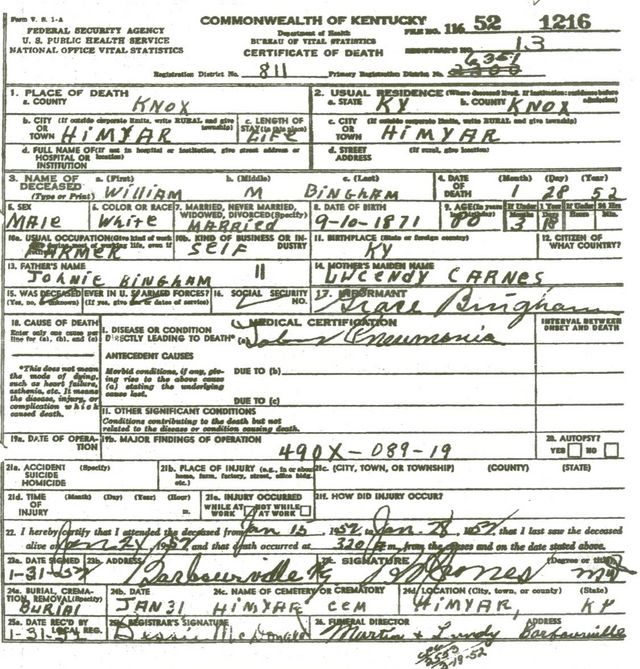 Form V. S. 1-A
COMMONWEALTH OF KENTUCKY
FILE NO. 116 52 1216
FEDERAL SECURITY AGENCY
Department of Health
U. S. PUBLIC HEALTH SERVICE
BUREAU OF VITAL STATISTICS
REGISTRAR'S NO. 13
NATIONAL OFFICE VITAL STATISTICS
CERTIFICATE OF DEATH
6351
Registration District No. 811 Primary Registration District No.
1. PLACE OF DEATH
a. COUNTY KNOX
2. USUAL RESIDENCE (Where deceased lived. If institution: residence before admission)
a. STATE KY b. COUNTY KNOX
b. CITY (If outside corporate limits, write RURAL and give township)
OR TOWN HIMYAR
c. LENGTH OF STAY (in this place) LIFE
c. CITY (If outside corporate limits, write RURAL and give township)
OR TOWN HIMYAR
d. FULL NAME OF (If not in hospital or institution, give street address or location)
HOSPITAL OR INSTITUTION
d. STREET ADDRESS (If rural, give location)
3. NAME OF DECEASED (Type or Print)
a. (First) William b. (Middle) M c. (Last) BINGHAM
4. DATE OF DEATH (Month) (Day) (Year) 1 28 52
5. SEX Male
6. COLOR OR RACE White
7. MARRIED, NEVER MARRIED, WIDOWED, DIVORCED (Specify) MARRIED
8. DATE OF BIRTH 9-10-1871
9. AGE (In years last birthday) 80 If Under 1 Year Months 3 Days 18 If Under 24 Hrs
10a. USUAL OCCUPATION (Give kind of work done during most of working life, even if FARMER
10b. KIND OF BUSINESS OR INDUSTRY Self
11. BIRTHPLACE (State or foreign country) KY
12. CITIZEN OF WHAT COUNTRY?
13. FATHER'S NAME Johnie BINGHAM
14. MOTHER'S MAIDEN NAME CARNES
15. WAS DECEASED EVER IN U. S. ARMED FORCES? (Yes, no, or unknown) (If yes, give war or dates of service)
16. SOCIAL SECURITY NO.
17. INFORMANT Grace Bingham
18. CAUSE OF DEATH
Enter only one cause per line for (a), (b), and (c)
MEDICAL CERTIFICATION
INTERVAL BETWEEN ONSET AND DEATH
I. DISEASE OR CONDITION DIRECTLY LEADING TO DEATH* (a) Lobar Pneumonia
*This does not mean the mode of dying, such as heart failure, asthenia, etc. It means the disease, injury, or complication which caused death.
ANTECEDENT CAUSES
Morbid conditions, if any, giving rise to the above cause (a) stating the underlying cause last.
DUE TO (b)
DUE TO (c)
II. OTHER SIGNIFICANT CONDITIONS
Conditions contributing to the death but not related to the disease or condition causing death.
19a. DATE OF OPERATION
19b. MAJOR FINDINGS OF OPERATION
490X-089-19
20. AUTOPSY? YES NO
21a. ACCIDENT SUICIDE HOMICIDE (Specify)
21b. PLACE OF INJURY (e.g., in or about home, farm, factory, street, office bldg. etc.)
21c. (CITY, TOWN, OR TOWNSHIP) (COUNTY) (STATE)
21d. TIME OF INJURY (Month) (Day) (Year) (Hour) m.
21e. INJURY OCCURRED WHILE AT WORK NOT WHILE AT WORK
21f. HOW DID INJURY OCCUR?
22. I hereby certify that I attended the deceased from Jan 15, 1952, to Jan 28, 1952, that I last saw the deceased
alive on Jan 1952, and that death occurred at 320 m., from the causes and on the date stated above.
23a. DATE SIGNED 1-31-52
23b. ADDRESS Barbourville Ky
SIGNATURE (Degree or title) MD
24a. BURIAL, CREMATION, REMOVAL (Specify) BURIAL
24b. DATE JAN 31
24c. NAME OF CEMETERY OR CREMATORY HIMYAR CEM
24d. LOCATION (City, town, or county) (State) HIMYAR, KY
25a. DATE REC'D BY LOCAL REG. 1-31-52
REGISTRAR'S SIGNATURE Bessie McDonald
26. FUNERAL DIRECTOR ADDRESS
Martin & Lundy Barbourville
2-19-52